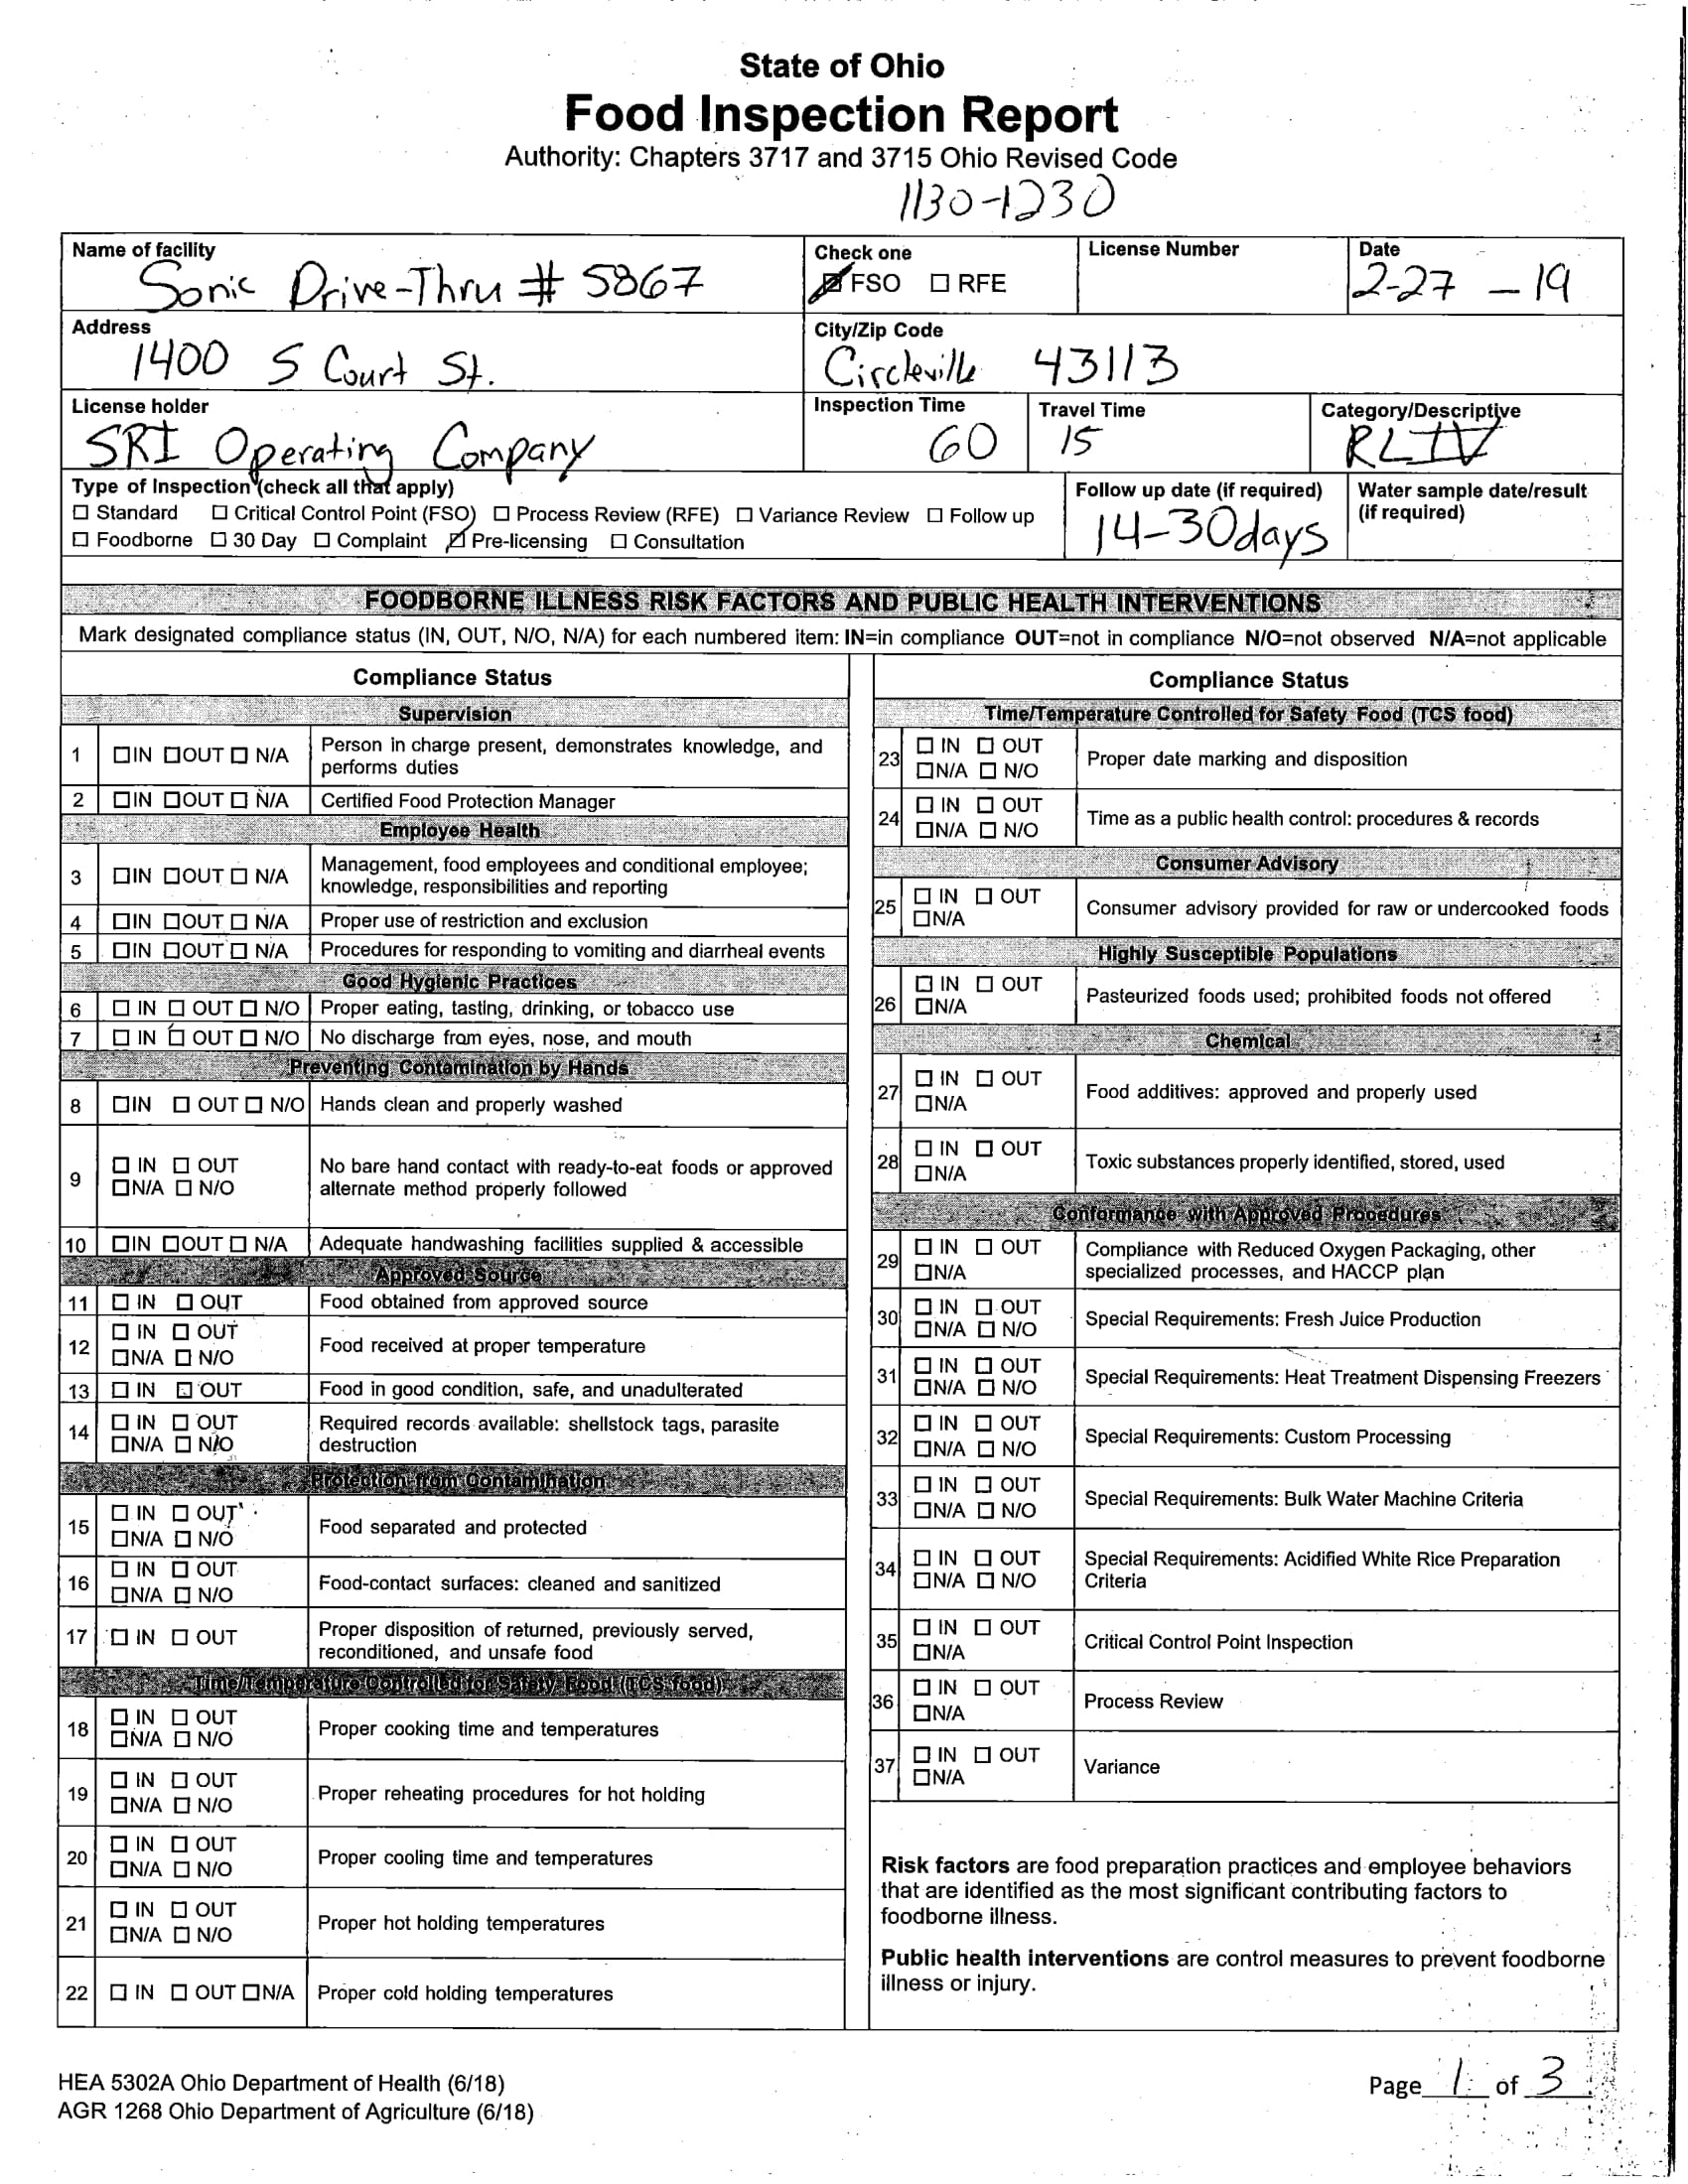 State of Ohio
Food Inspection Report
Authority: Chapters 3717 and 3715 Ohio Revised Code
1130-1230
Name of facility
Sonic Drive-Thru # 5867
Check one
☒ FSO ☐ RFE
License Number
Date
2-27-19
Address
1400 S Court St.
City/Zip Code
Circleville 43113
License holder
SRI Operating Company
Inspection Time
60
Travel Time
15
Category/Descriptive
RLIV
Type of Inspection (check all that apply)
☐ Standard ☐ Critical Control Point (FSO) ☐ Process Review (RFE) ☐ Variance Review ☐ Follow up
☐ Foodborne ☐ 30 Day ☐ Complaint ☒ Pre-licensing ☐ Consultation
Follow up date (if required)
14-30days
Water sample date/result
(if required)
FOODBORNE ILLNESS RISK FACTORS AND PUBLIC HEALTH INTERVENTIONS
Mark designated compliance status (IN, OUT, N/O, N/A) for each numbered item: IN=in compliance OUT=not in compliance N/O=not observed N/A=not applicable
Compliance Status
Supervision
1 ☐IN ☐OUT ☐ N/A Person in charge present, demonstrates knowledge, and
performs duties
2 ☐IN ☐OUT ☐ N/A Certified Food Protection Manager
Employee Health
3 ☐IN ☐OUT ☐ N/A Management, food employees and conditional employee;
knowledge, responsibilities and reporting
4 ☐IN ☐OUT ☐ N/A Proper use of restriction and exclusion
5 ☐IN ☐OUT ☐ N/A Procedures for responding to vomiting and diarrheal events
Good Hygienic Practices
6 ☐ IN ☐ OUT ☐ N/O Proper eating, tasting, drinking, or tobacco use
7 ☐ IN ☐ OUT ☐ N/O No discharge from eyes, nose, and mouth
Preventing Contamination by Hands
8 ☐IN ☐ OUT ☐ N/O Hands clean and properly washed
9 ☐ IN ☐ OUT
☐N/A ☐ N/O
No bare hand contact with ready-to-eat foods or approved
alternate method properly followed
10 ☐IN ☐OUT ☐ N/A Adequate handwashing facilities supplied & accessible
Approved Source
11 ☐ IN ☐ OUT Food obtained from approved source
12 ☐ IN ☐ OUT
☐N/A ☐ N/O
Food received at proper temperature
13 ☐ IN ☐ OUT Food in good condition, safe, and unadulterated
14 ☐ IN ☐ OUT
☐N/A ☐ N/O
Required records available: shellstock tags, parasite
destruction
Protection from Contamination
15 ☐ IN ☐ OUT
☐N/A ☐ N/O
Food separated and protected
16 ☐ IN ☐ OUT
☐N/A ☐ N/O
Food-contact surfaces: cleaned and sanitized
17 ☐ IN ☐ OUT Proper disposition of returned, previously served,
reconditioned, and unsafe food
Time/Temperature Controlled for Safety Food (TCS food)
18 ☐ IN ☐ OUT
☐N/A ☐ N/O
Proper cooking time and temperatures
19 ☐ IN ☐ OUT
☐N/A ☐ N/O
Proper reheating procedures for hot holding
20 ☐ IN ☐ OUT
☐N/A ☐ N/O
Proper cooling time and temperatures
21 ☐ IN ☐ OUT
☐N/A ☐ N/O
Proper hot holding temperatures
22 ☐ IN ☐ OUT ☐N/A Proper cold holding temperatures
Compliance Status
Time/Temperature Controlled for Safety Food (TCS food)
23 ☐ IN ☐ OUT
☐N/A ☐ N/O
Proper date marking and disposition
24 ☐ IN ☐ OUT
☐N/A ☐ N/O
Time as a public health control: procedures & records
Consumer Advisory
25 ☐ IN ☐ OUT
☐N/A
Consumer advisory provided for raw or undercooked foods
Highly Susceptible Populations
26 ☐ IN ☐ OUT
☐N/A
Pasteurized foods used; prohibited foods not offered
Chemical
27 ☐ IN ☐ OUT
☐N/A
Food additives: approved and properly used
28 ☐ IN ☐ OUT
☐N/A
Toxic substances properly identified, stored, used
Conformance with Approved Procedures
29 ☐ IN ☐ OUT
☐N/A
Compliance with Reduced Oxygen Packaging, other
specialized processes, and HACCP plan
30 ☐ IN ☐ OUT
☐N/A ☐ N/O
Special Requirements: Fresh Juice Production
31 ☐ IN ☐ OUT
☐N/A ☐ N/O
Special Requirements: Heat Treatment Dispensing Freezers
32 ☐ IN ☐ OUT
☐N/A ☐ N/O
Special Requirements: Custom Processing
33 ☐ IN ☐ OUT
☐N/A ☐ N/O
Special Requirements: Bulk Water Machine Criteria
34 ☐ IN ☐ OUT
☐N/A ☐ N/O
Special Requirements: Acidified White Rice Preparation
Criteria
35 ☐ IN ☐ OUT
☐N/A
Critical Control Point Inspection
36 ☐ IN ☐ OUT
☐N/A
Process Review
37 ☐ IN ☐ OUT
☐N/A
Variance
Risk factors are food preparation practices and employee behaviors
that are identified as the most significant contributing factors to
foodborne illness.
Public health interventions are control measures to prevent foodborne
illness or injury.
HEA 5302A Ohio Department of Health (6/18)
AGR 1268 Ohio Department of Agriculture (6/18)
Page 1 of 3